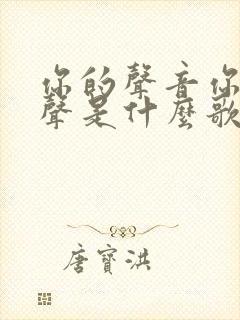 你的聲音你
聲是什麼歌
唐寶洪